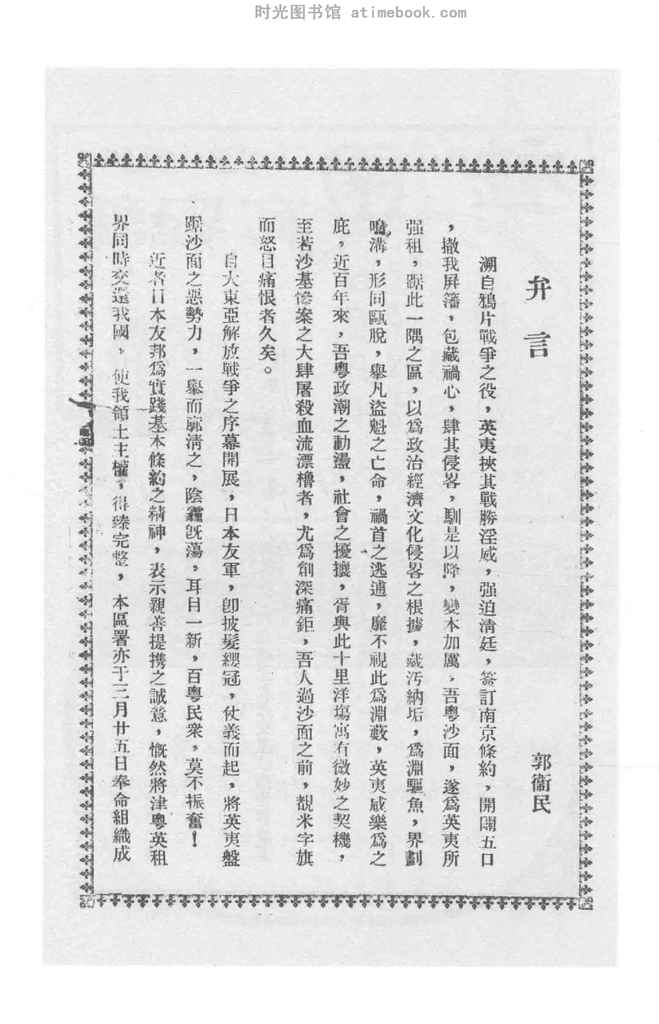 时光图书馆 atimebook.com
弁言
郭衞民
溯自鴉片戰爭之役，英夷挾其戰勝淫威，强迫清廷，簽訂南京條約，開闢五口
，撤我屏籓，包藏禍心，肆其侵畧，馴是以降，變本加厲，吾粵沙面，遂爲英夷所
强租，踞此一隅之區，以爲政治經濟文化侵畧之根據，藏汚納垢，爲淵驅魚，界劃
鴻溝，形同甌脫，舉凡盜魁之亡命，禍首之逃逋，靡不視此爲淵藪，英夷咸樂爲之
庇，近百年來，吾粵政潮之動盪，社會之擾攘，胥與此十里洋塲寓有微妙之契機，
至若沙基慘案之大肆屠殺血流漂櫓者，尤爲創深痛鉅，吾人過沙面之前，覩米字旗
而怒目痛恨者久矣。
自大東亞解放戰爭之序幕開展，日本友軍，卽披髮纓冠，仗義而起，將英夷盤
踞沙面之惡勢力，一舉而廓淸之，陰霾旣蕩，耳目一新，百粵民衆，莫不振奮！
近者日本友邦爲實踐基本條約之精神，表示親善提携之誠意，慨然將津粵英租
界同時交還我國，使我領土主權，得臻完整，本區署亦于三月廿五日奉命組織成